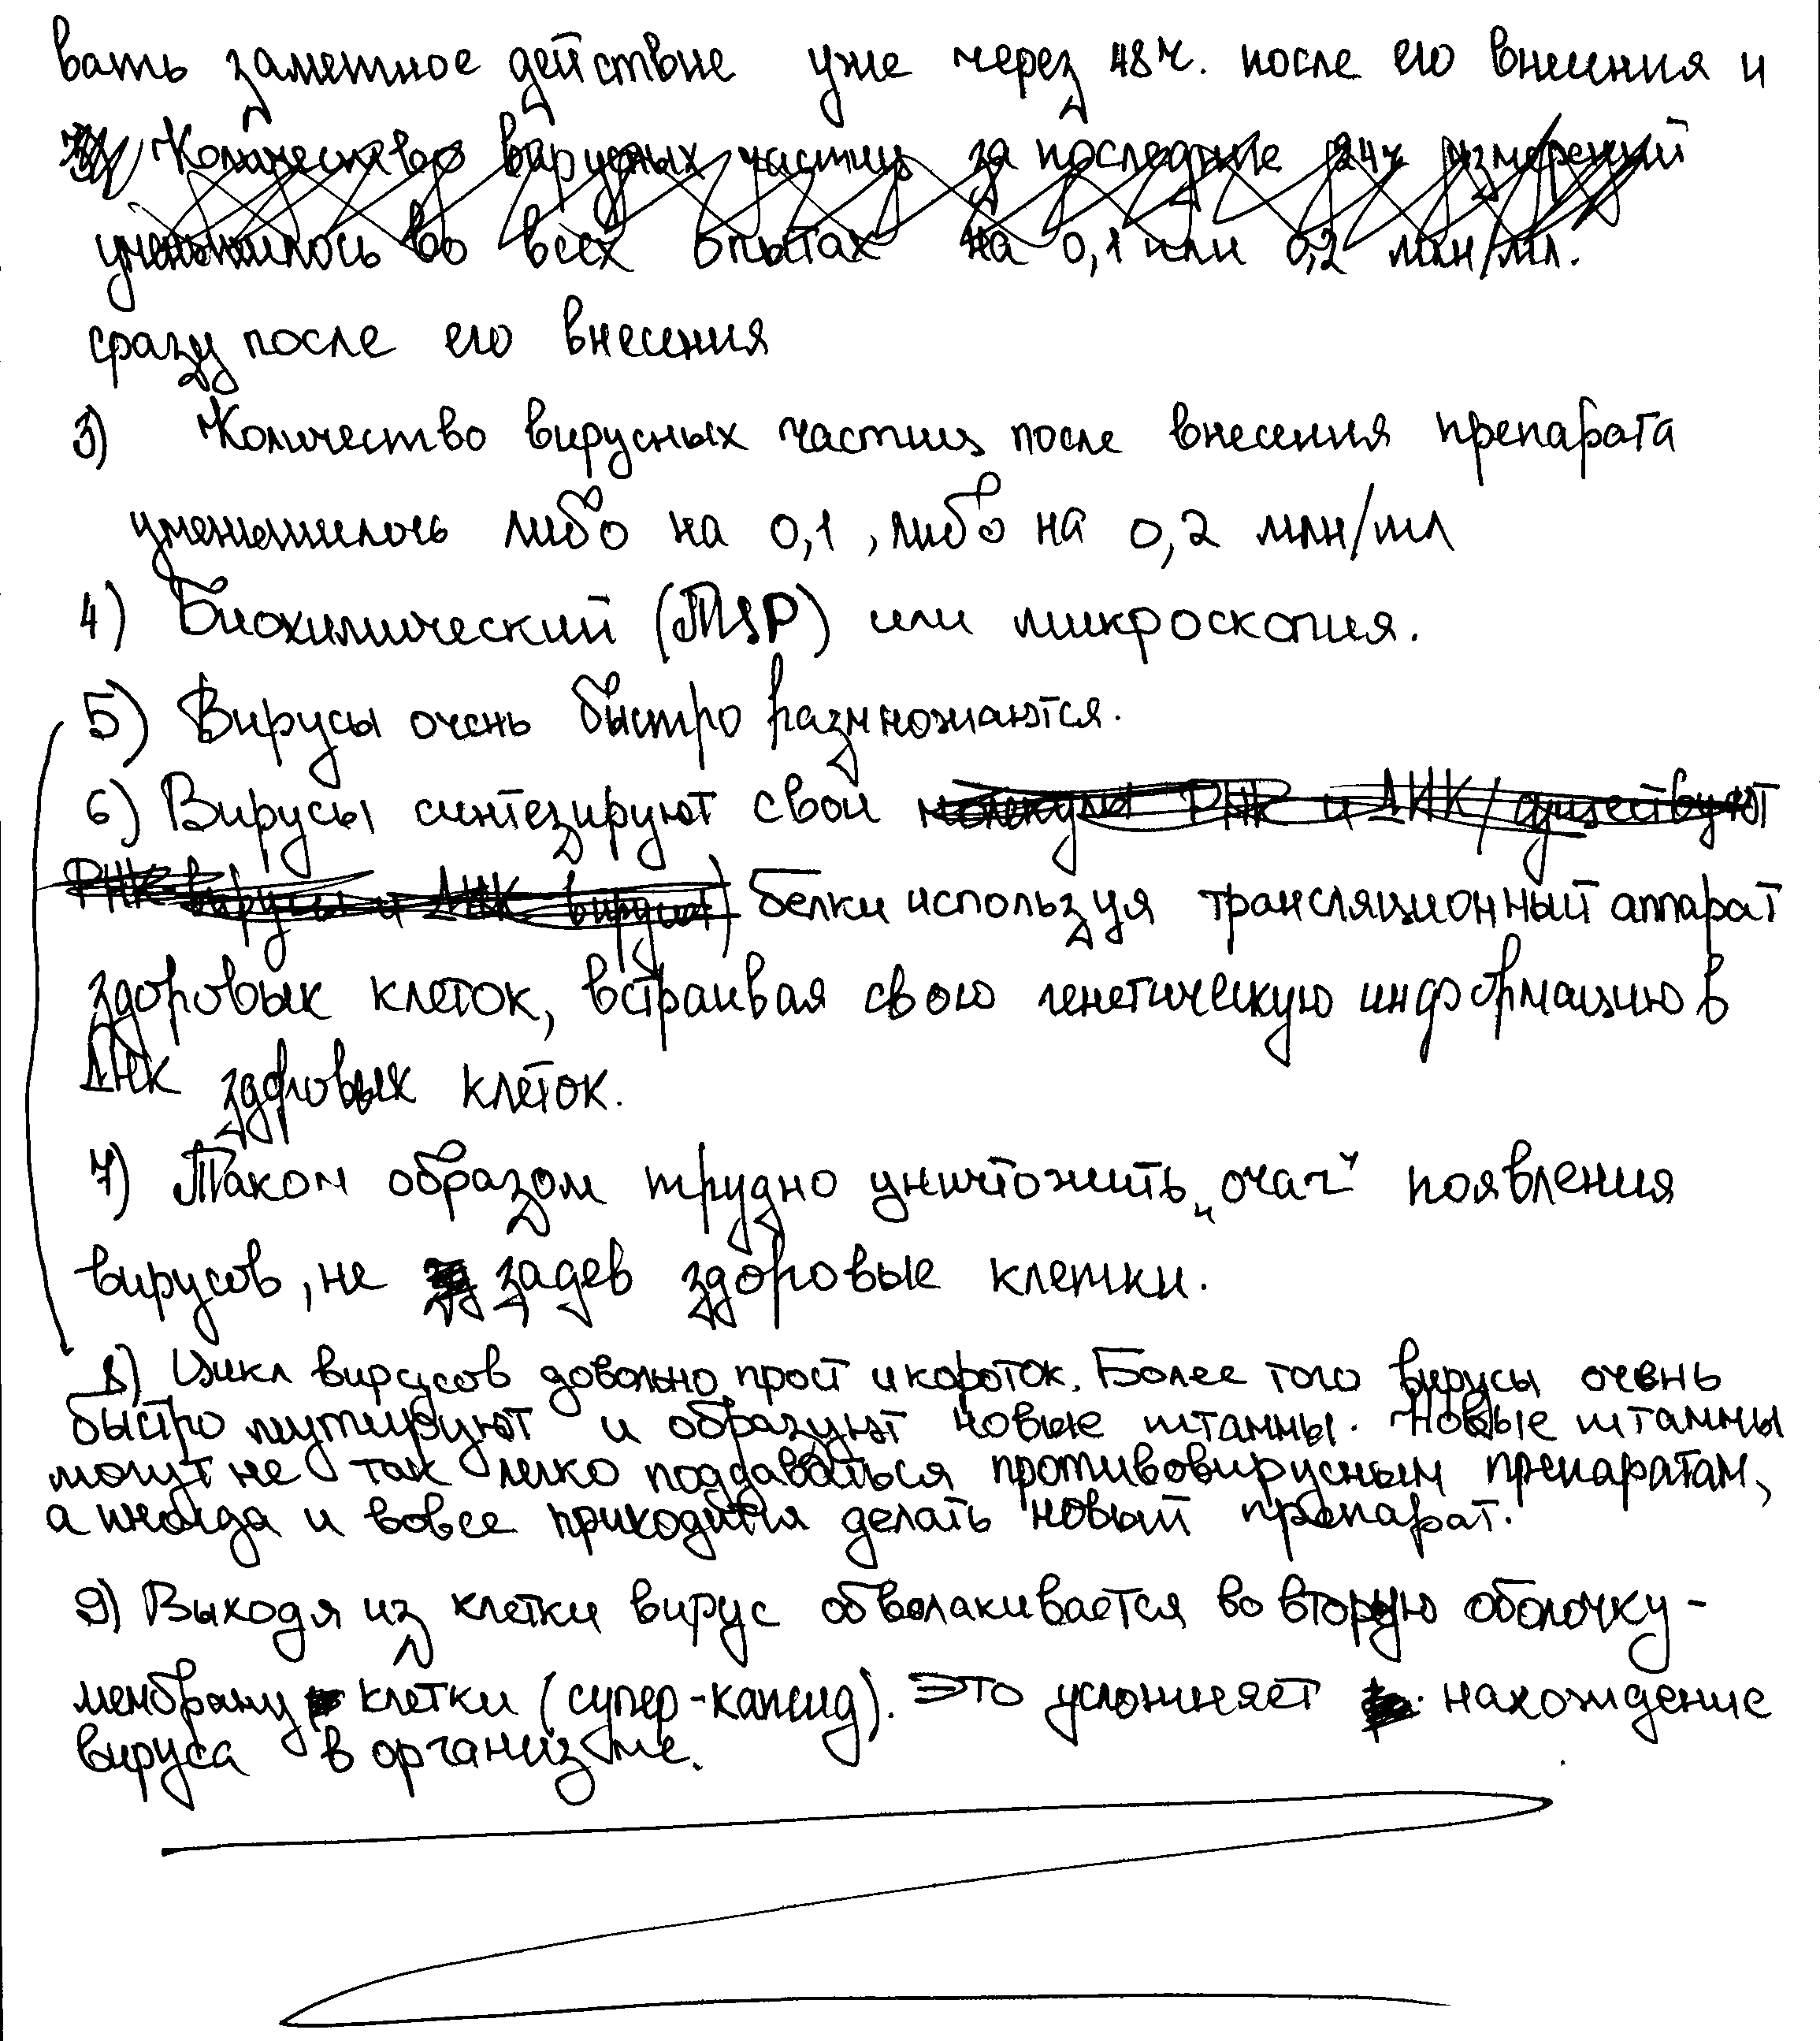 вать заметное действие уже через 48 ч. после его внесения и
Количество вирусных частиц за последние 24ч измерений
уменьшилось во всех опытах на 0,1 или 0,2 млн/мл.
сразу после его внесения
3) Количество вирусных частиц после внесения препарата
уменьшилось либо на 0,1, либо на 0,2 млн/мл
4) Биохимический (ПЦР) или микроскопия.
5) Вирусы очень быстро размножаются.
6) Вирусы синтезируют свои молекулы РНК и ДНК (существуют
РНК-вирусы и ДНК вирусы) белки используя трансляционный аппарат
здоровых клеток, встраивая свою генетическую информацию в
ДНК здоровых клеток.
7) Таком образом трудно уничтожить „очаг“ появления
вирусов, не задев здоровые клетки.
8) Цикл вирусов довольно прост и короток. Более того вирусы очень
быстро мутируют и образуют новые штаммы. Новые штаммы
могут не так легко поддаваться противовирусным препаратам,
а иногда и вовсе приходится делать новый препарат.
9) Выходя из клетки вирус обволакивается во вторую оболочку -
мембрану клетки (супер-капсид). Это усложняет нахождение
вируса в организме.